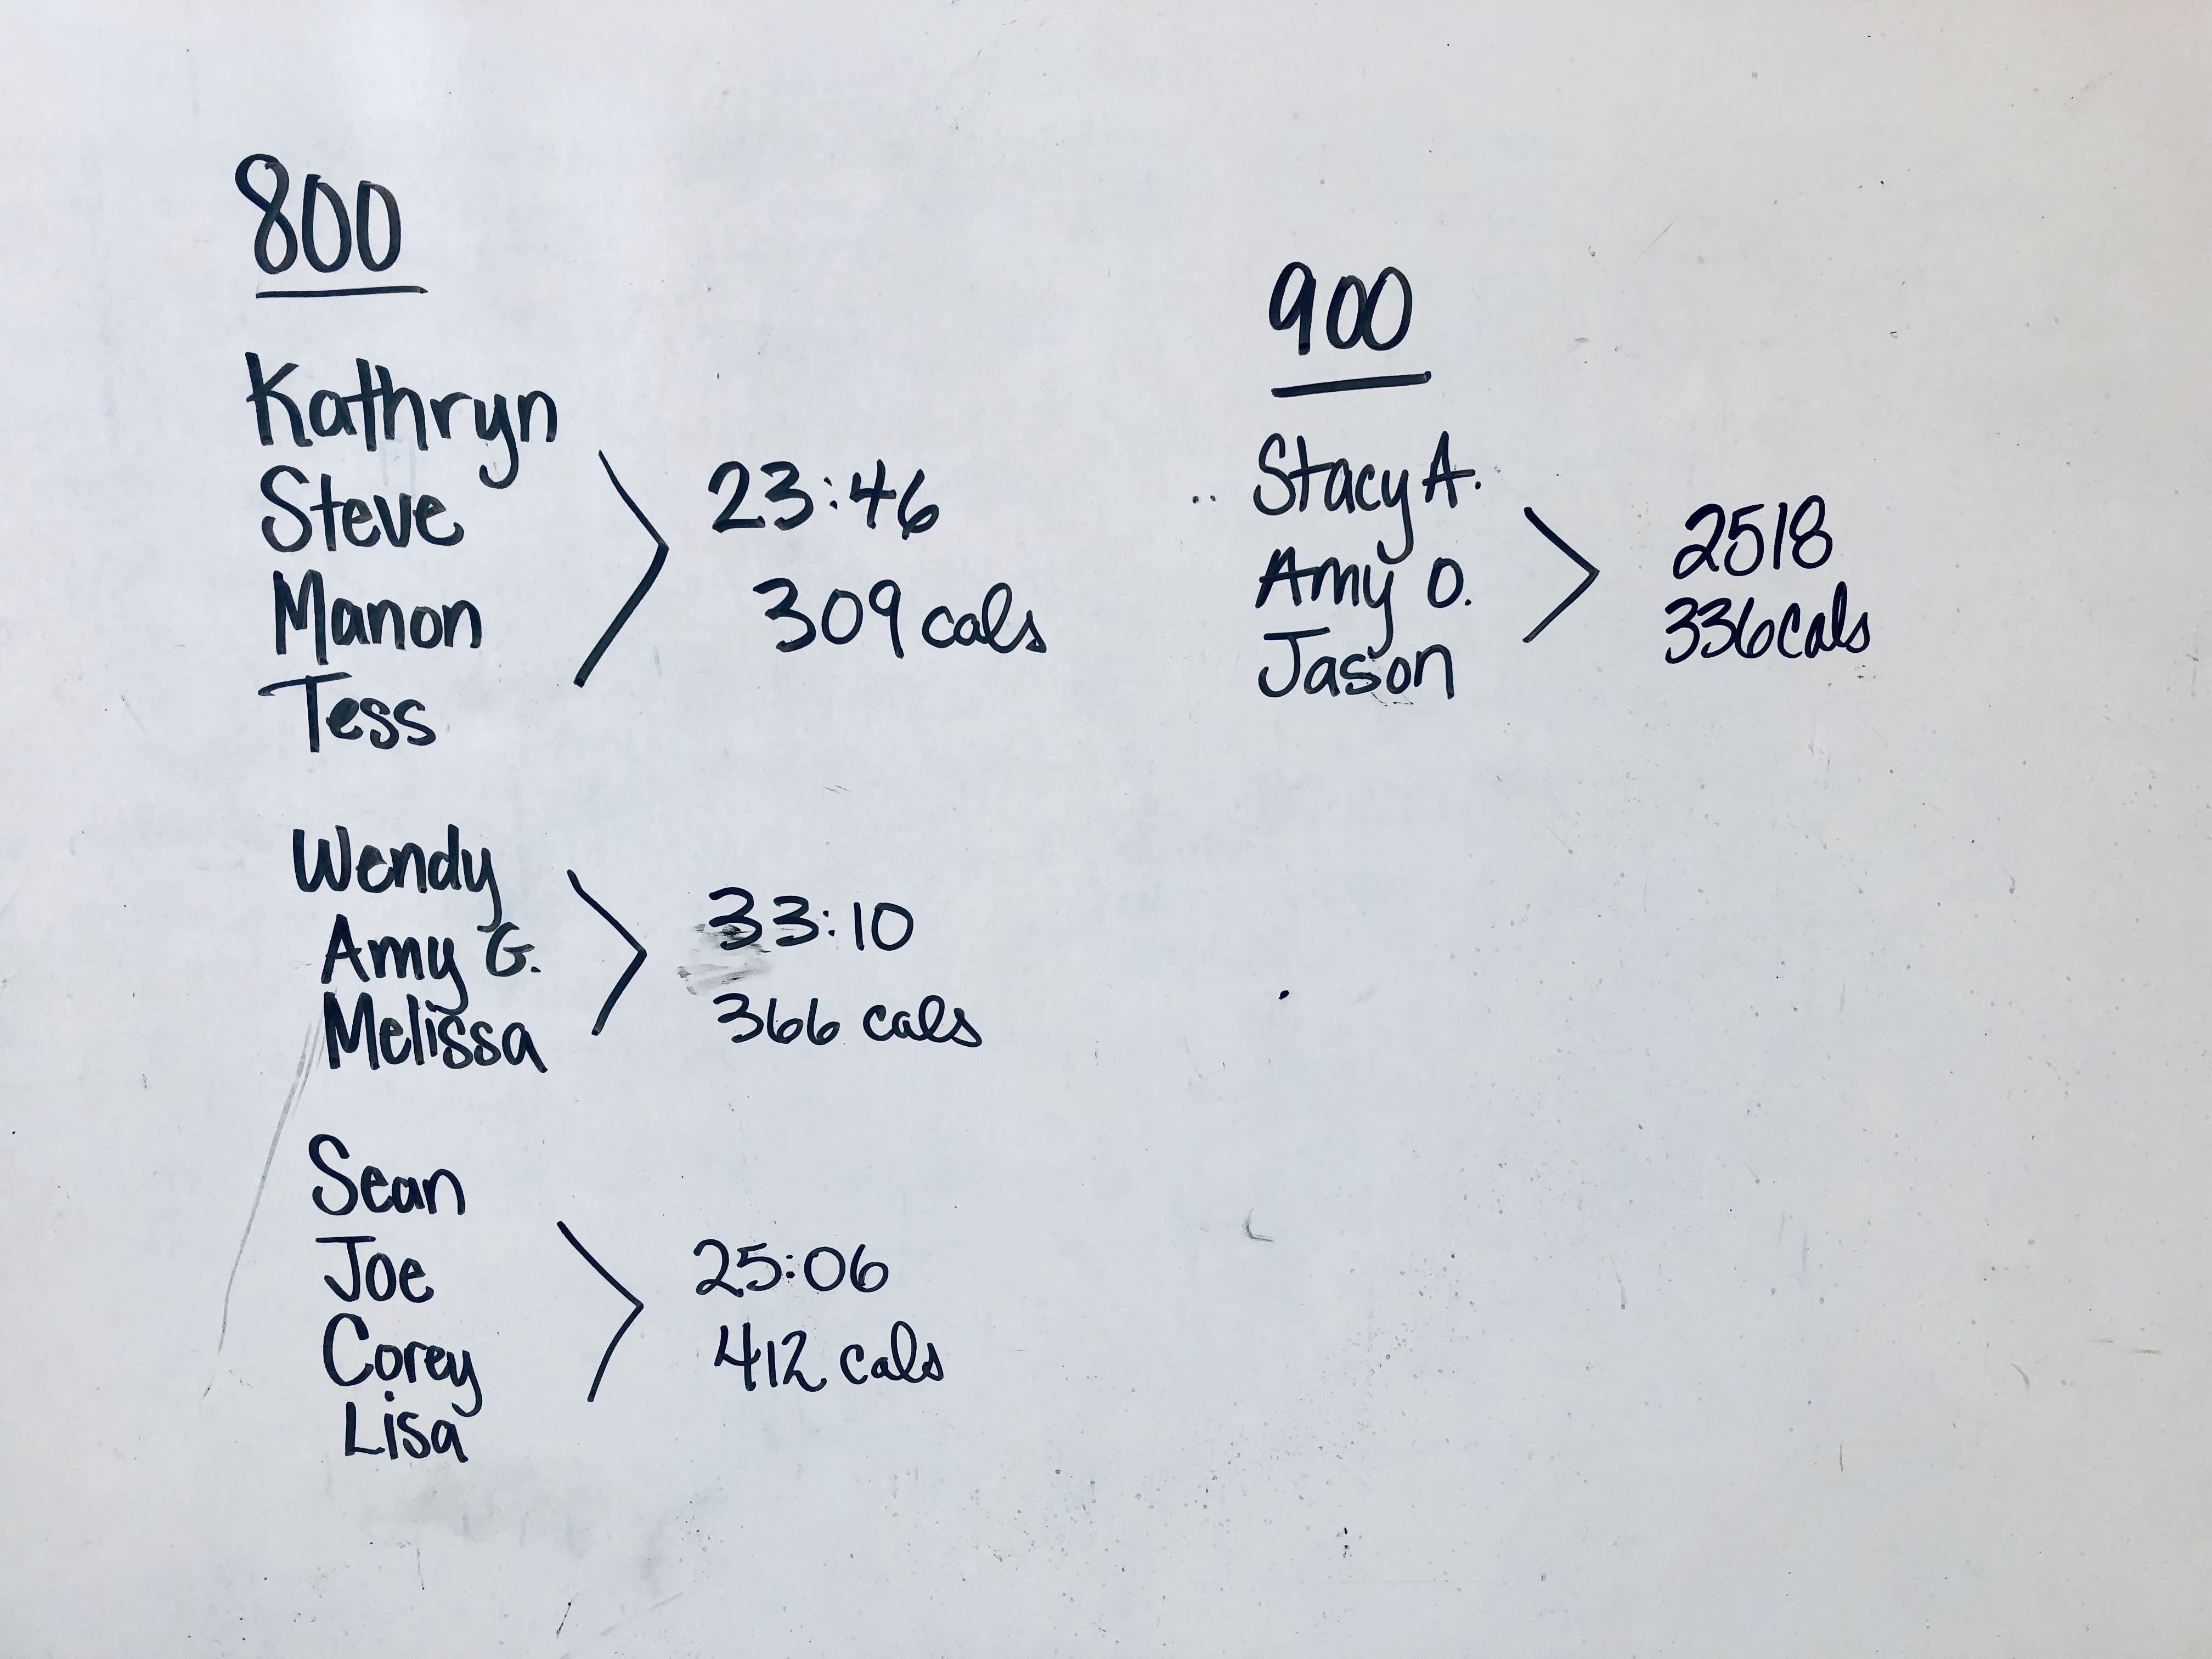 800
Kathryn
Steve
Manon
Tess
23:46
309 cals
Wendy
Amy G.
Melissa
33:10
366 cals
Sean
Joe
Corey
Lisa
25:06
412 cals
900
Stacy A.
Amy O.
Jason
2518
336 cals